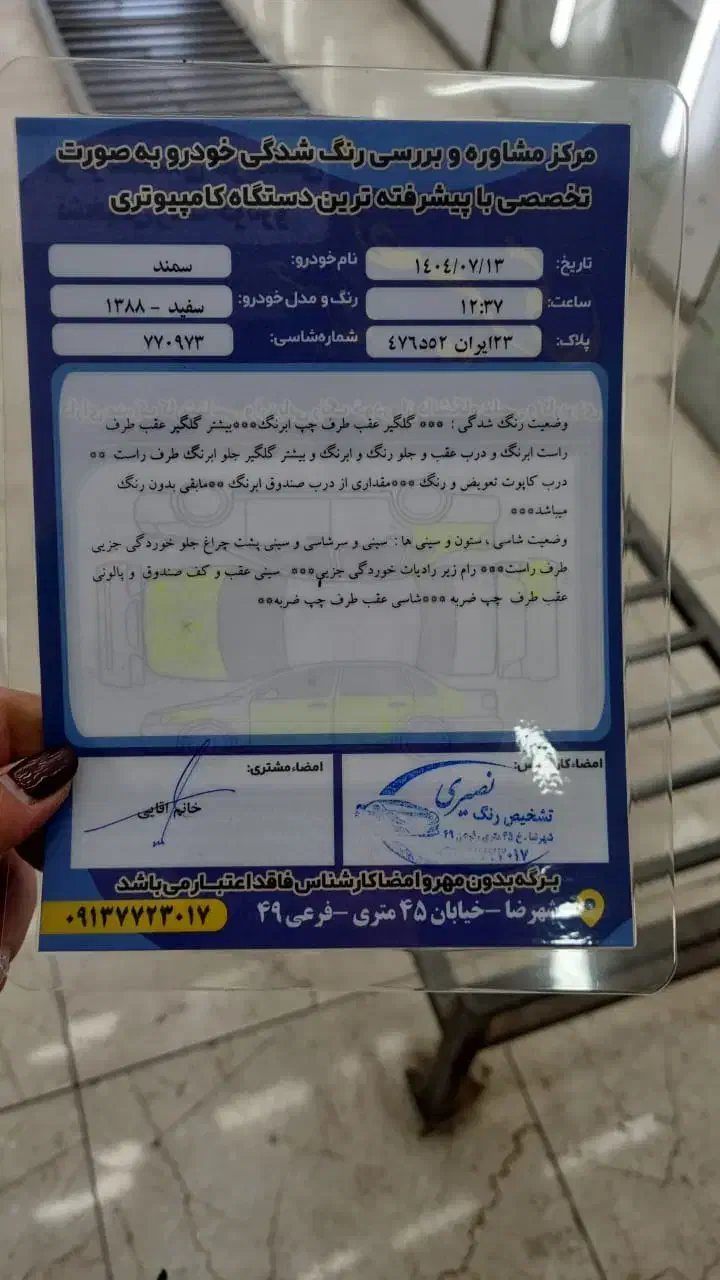 مرکز مشاوره و بررسی رنگ شدگی خودرو به صورت
تخصصی با پیشرفته ترین دستگاه کامپیوتری
تاریخ: ۱٤۰٤/۰۷/۱۳ نام خودرو: سمند
ساعت: ۱۲:۳۷ رنگ و مدل خودرو: سفید - ۱۳۸۸
پلاک: ۲۳ایران ۵۲د٤۷٦ شماره شاسی: ۷۷۰۹۷۳
وضعیت رنگ شدگی : *** گلگیر عقب طرف چپ ابرنگ***بیشتر گلگیر عقب طرف
راست ابرنگ و درب عقب و جلو رنگ و ابرنگ و بیشتر گلگیر جلو ابرنگ طرف راست **
درب کاپوت تعویض و رنگ ***مقداری از درب صندوق ابرنگ **مابقی بدون رنگ
میباشد***
وضعیت شاسی ، ستون و سینی ها : سینی و سرشاسی و سینی پشت چراغ جلو خوردگی جزیی
طرف راست*** رام زیر رادیات خوردگی جزیی*** سینی عقب و کف صندوق و پالونی
عقب طرف چپ ضربه ***شاسی عقب طرف چپ ضربه**
امضاء مشتری:
خانم آقایی
نصیری
تشخیص رنگ
برگه بدون مهر و امضا کارشناس فاقد اعتبار می باشد
شهرضا - خیابان ۴۵ متری - فرعی ۴۹
۰۹۱۳۷۷۲۳۰۱۷